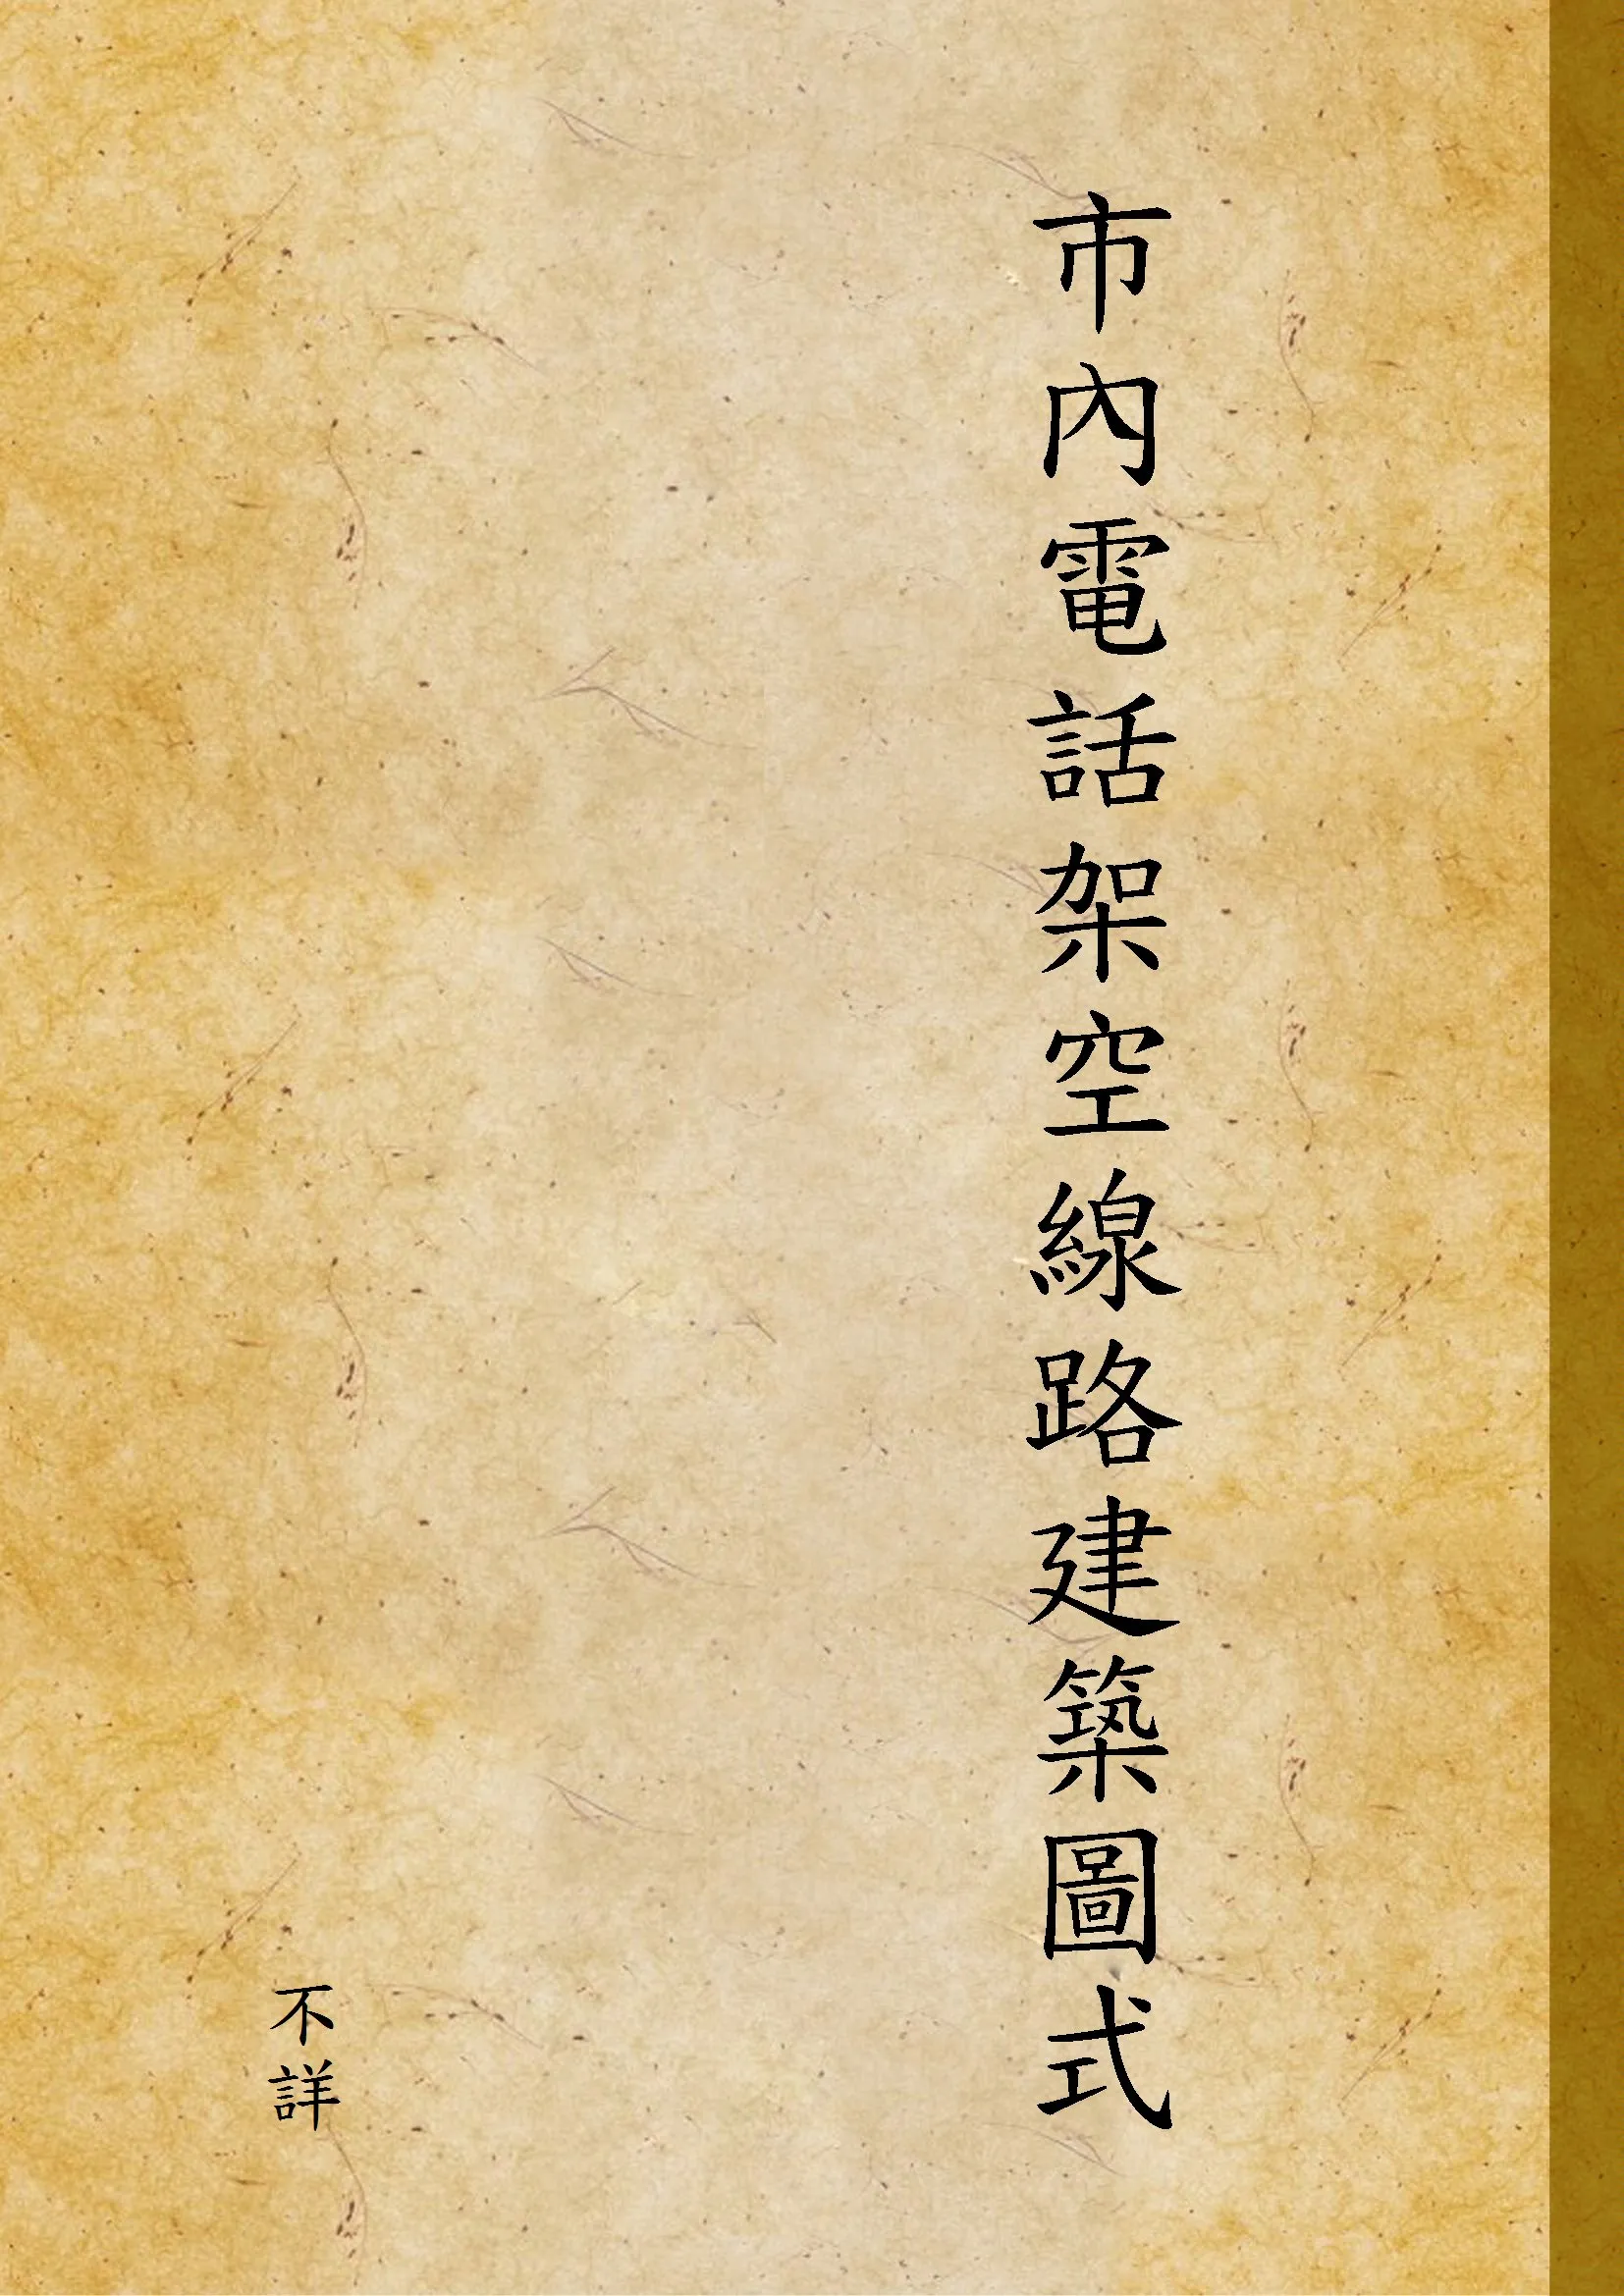 市內電話架空線路建築圖式
不詳